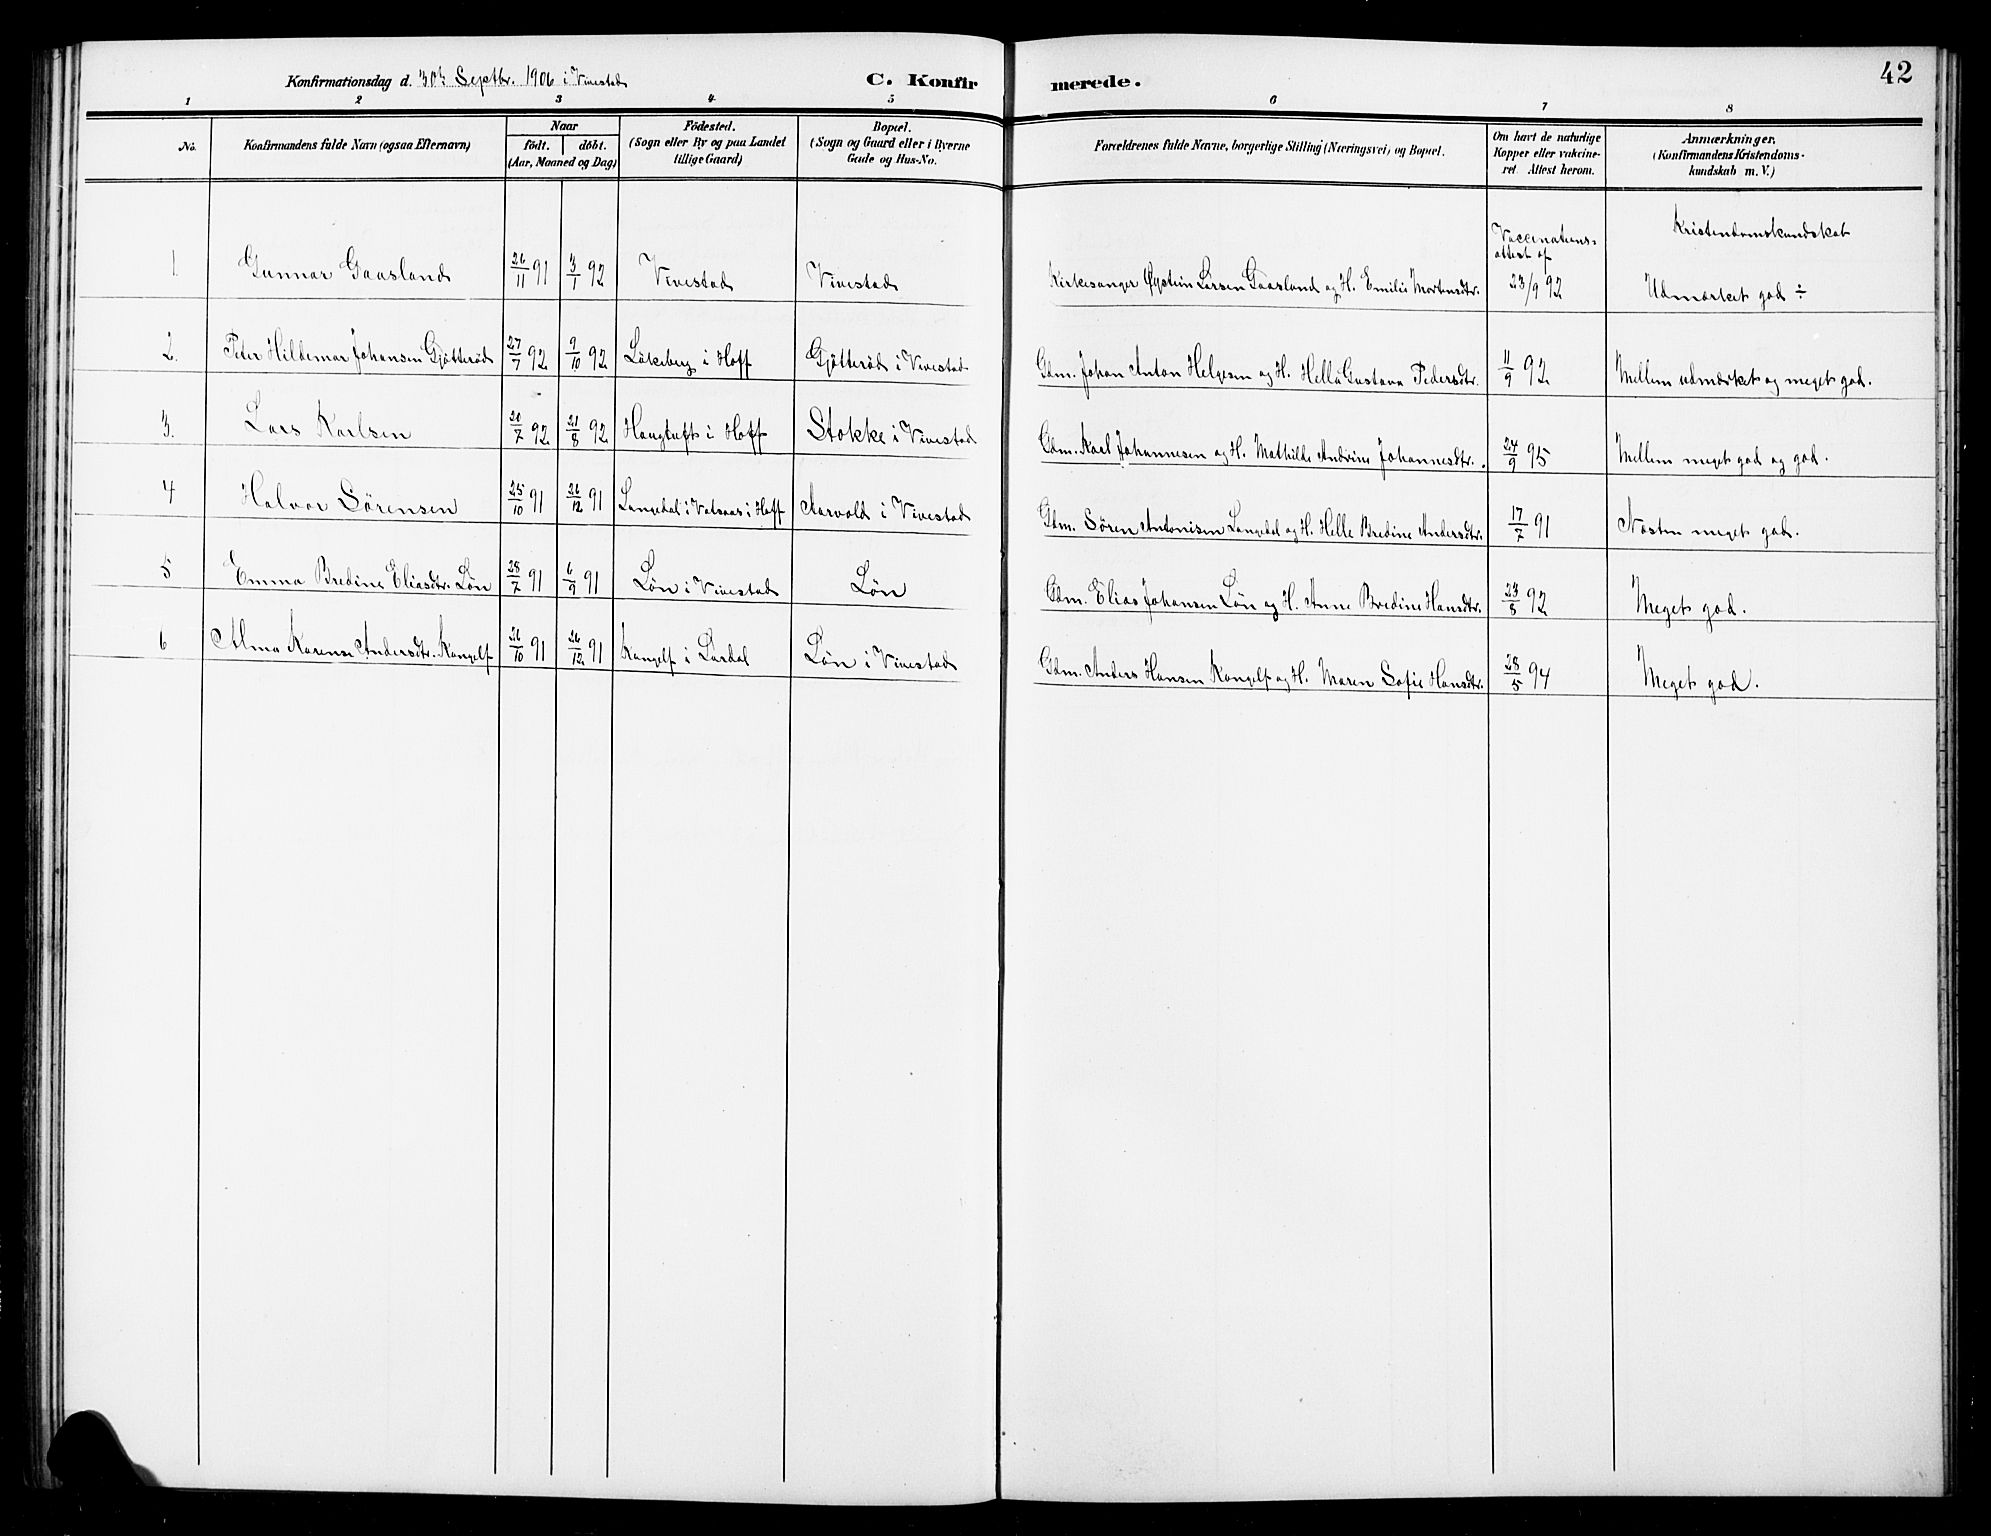 Konfirmationsdag d. 30te Septbr. 1906 i Vivestad C. Konfir merede. 42
1 2 3 4 5 6 7 8
No. Konfirmandens fulde Navn (ogsaa Efternavn) Naar født. døbt. (Aar, Maaned og Dag) Fødested. (Sogn eller By og paa Landet tillige Gaard) Bopæl. (Sogn og Gaard eller i Byerne Gade og Hus-No. Forældrenes fulde Navne, borgerlige Stilling (Næringsvei) og Bopæl. Om havt de naturlige Kopper eller vakcineret. Attest herom. Anmærkninger. (Konfirmandens Kristendomskundskab m. V.)
Vaccinations-attest af Kristendomskundskab
1 Gunnar Gaasland 26/11 91 3/1 92 Vivestad Vivestad Kirkesanger Øystein Larsen Gaasland og H. Emilie Mortensdtr. 23/9 92 Udmærket god ÷
2. Peter Hildemar Johansen Gjøtterød 27/7 92 9/10 92 Løkeberg i Hoff Gjøtterød i Vivestad Gdm. Johan Anton Helgesen og H. Hella Gustava Pedersdtr. 11/9 92 Mellem udmærket og meget god.
3. Lars Karlsen 20/7 92 21/8 92 Haugtuft i Hoff Stokke i Vivestad Gdm. Karl Johannesen og H. Mathilde Andrine Johannesdtr. 24/9 95 Mellem meget god og god.
4 Halvor Sørensen 25/10 91 26/12 91 Langedal i Vassaas i Hoff Aarvold i Vivestad Gdm. Søren Antonisen Langedal og H. Helle Bredine Andersdtr. 17/7 91 Næsten meget god.
5 Emma Bredine Eliasdtr. Løn 28/7 91 6/9 91 Løn i Vivestad Løn Gdm. Elias Johansen Løn og H. Anne Bredine Hansdtr. 23/8 92 Meget god.
6 Alma Karense Andersdtr. Kangelf 26/10 91 26/12 91 Kangelf i Lardal Løn i Vivestad Gdm. Anders Hansen Kangelf og H. Maren Sofie Hansdtr. 28/5 94 Meget god.